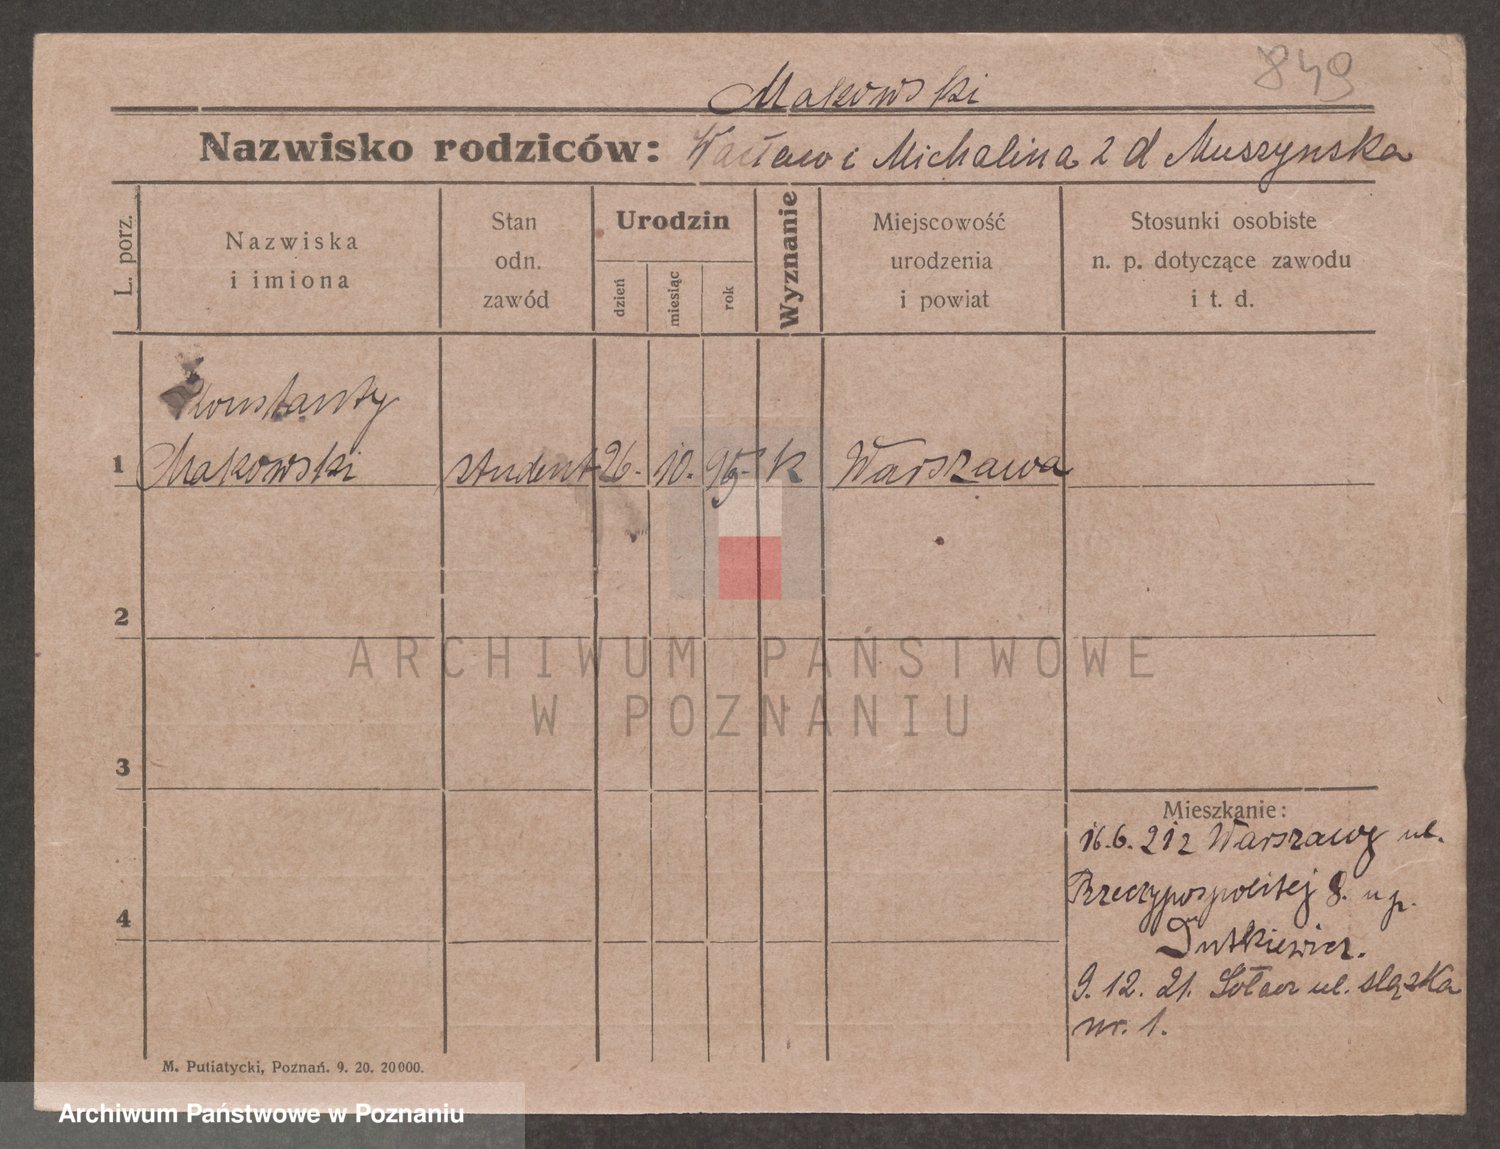 849
Makowski
Nazwisko rodziców: Wacław i Michalina z d Muszynska
L. porz.
Nazwiska
i imiona
Stan
odn.
zawód
Urodzin
dzień
miesiąc
rok
Wyznanie
Miejscowość
urodzenia
i powiat
Stosunki osobiste
n. p. dotyczące zawodu
i t. d.
Konstanty
1 Makowski student 26. 10. 95. k Warszawa
2
ARCHIWUM PAŃSTWOWE
W POZNANIU
3
Mieszkanie:
16.6.21 z Warszawy ul.
Rzeczypospolitej 8. u p.
4
Dutkiewicz.
9. 12. 21. Sołacz ul. slązka
nr. 1.
M. Putiatycki, Poznań. 9. 20. 20000.
Archiwum Państwowe w Poznaniu